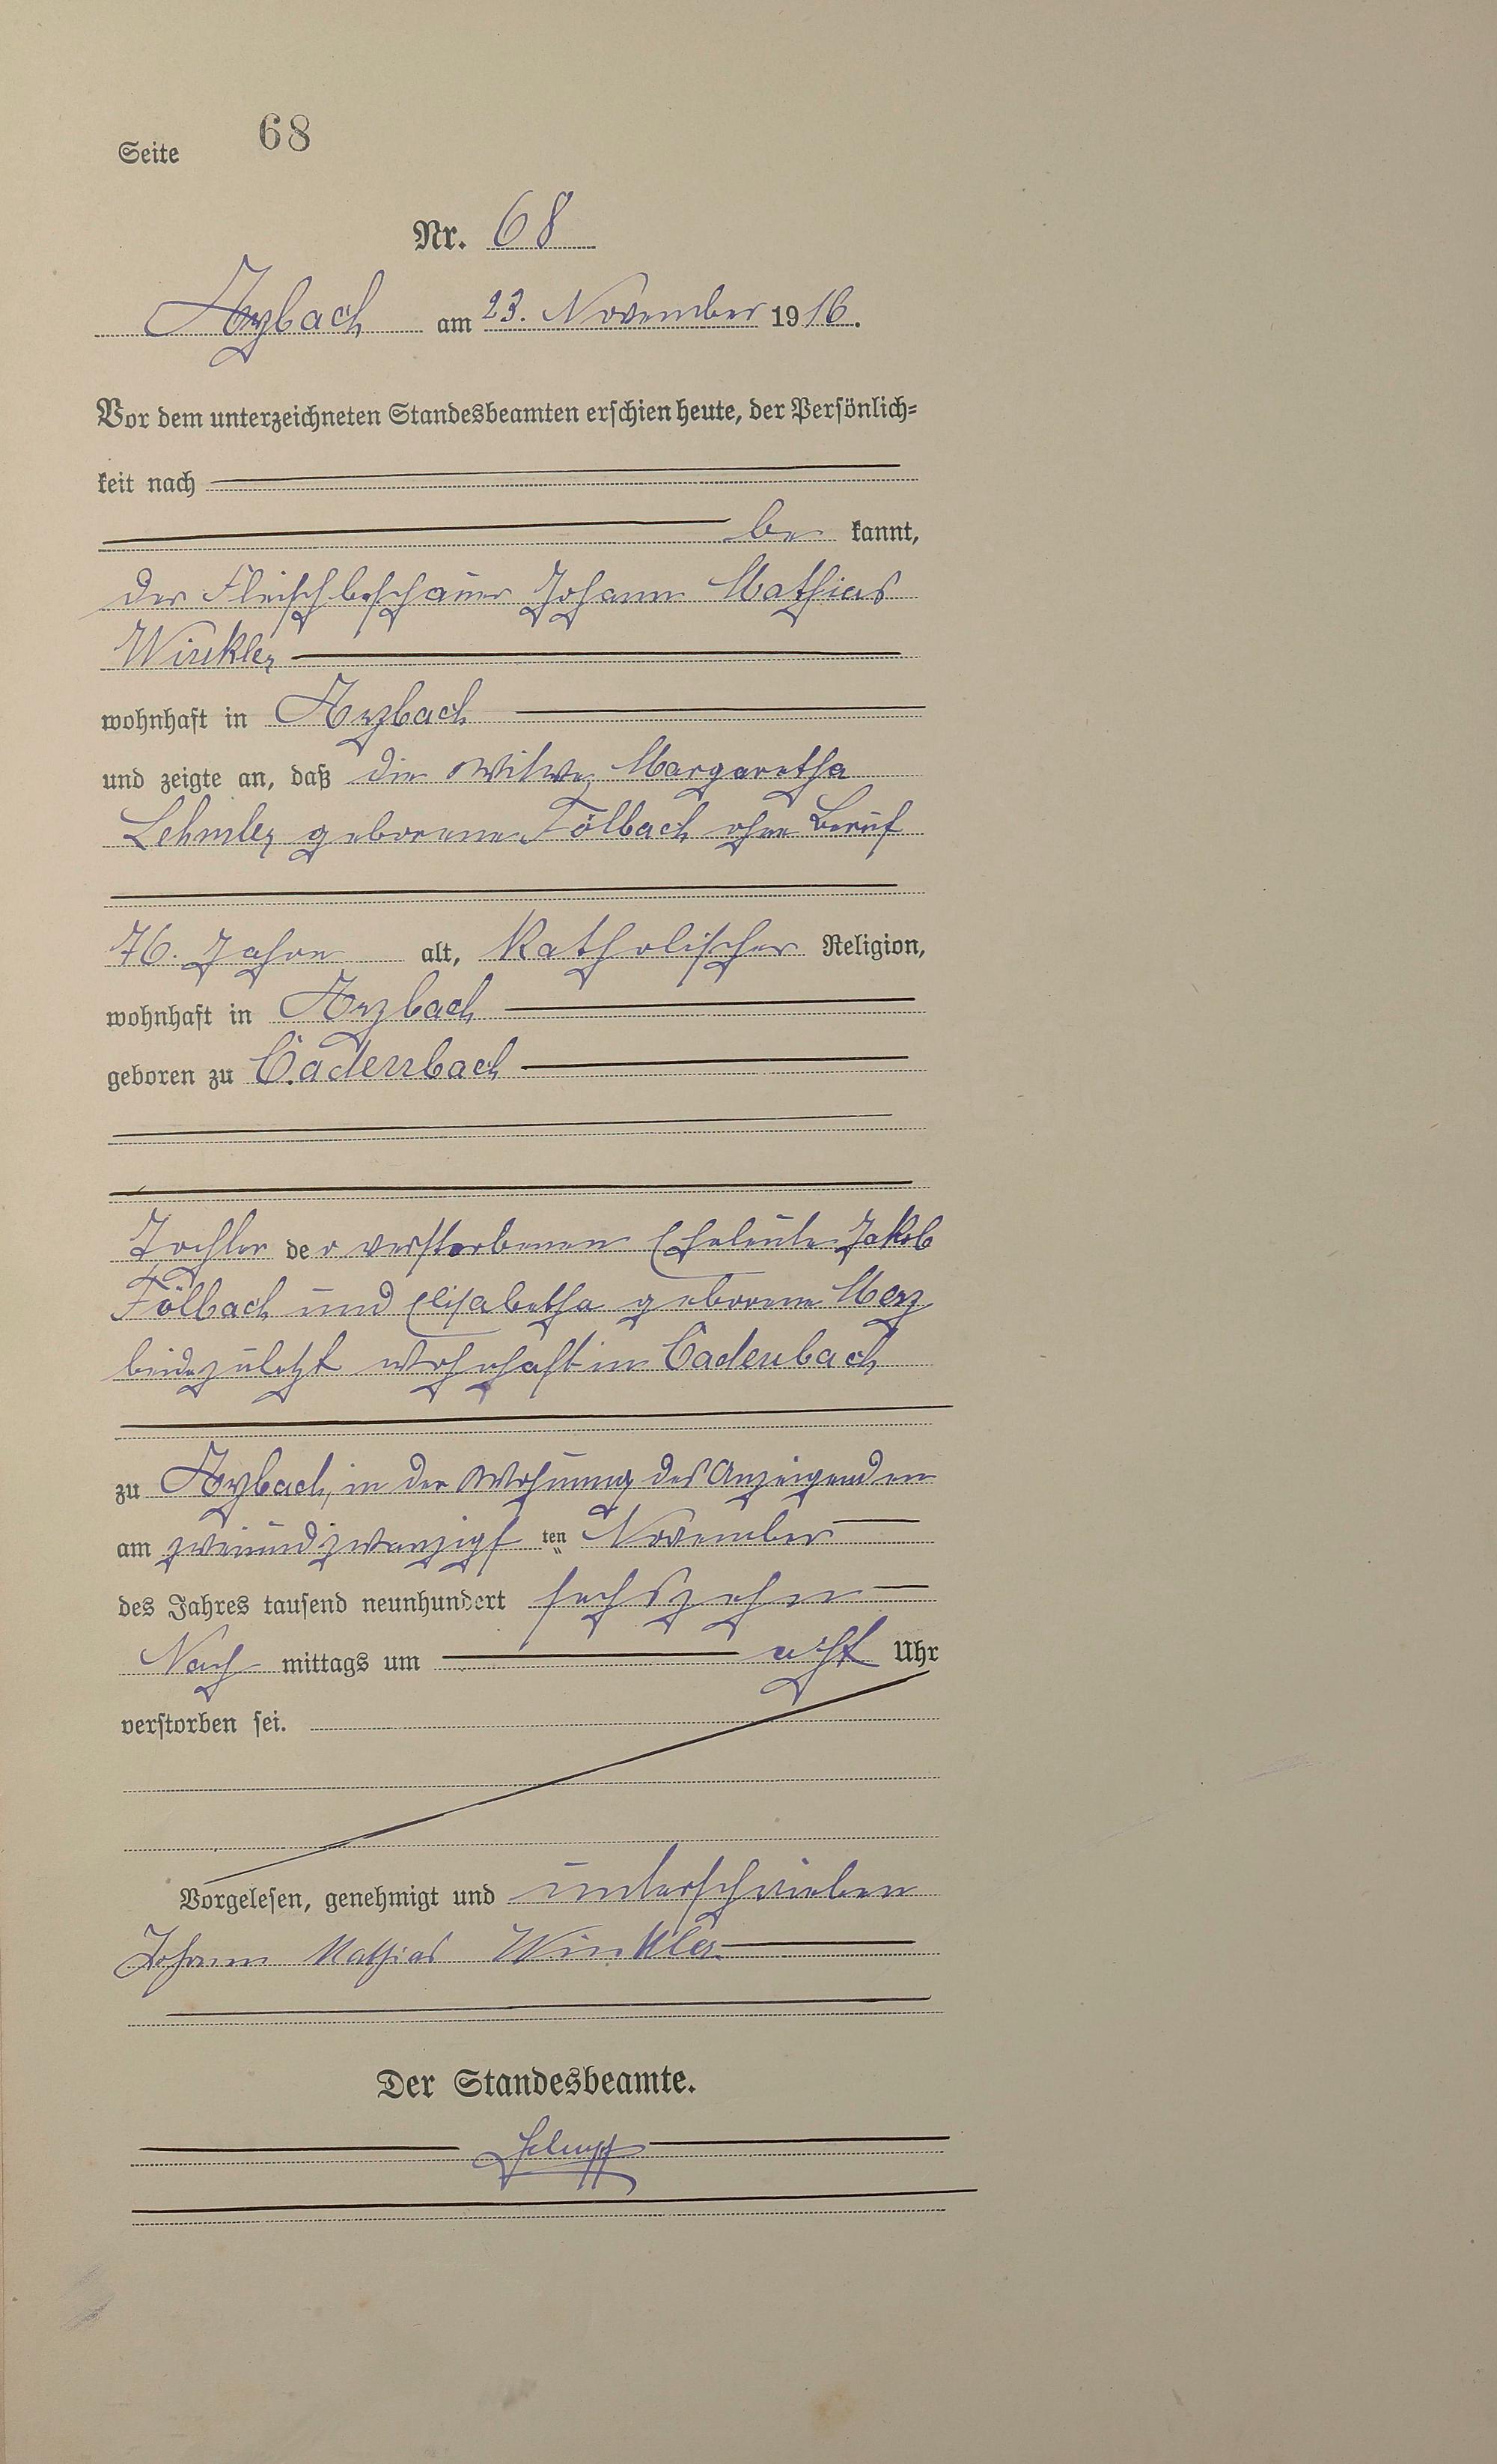 Seite 68
Nr. 68
Arzbach am 23. November 1916.
Vor dem unterzeichneten Standesbeamten erschien heute, der Persönlich=
keit nach
be kannt,
der Fleischbeschauer Johann Mathias
Winkler
wohnhaft in Arzbach
und zeigte an, daß die Witwe Margaretha
Lehmler geborene Fölbach ohne Beruf
76. Jahre alt, Katholischer Religion,
wohnhaft in Arzbach
geboren zu Cadenbach
Tochter der verstorbenen Eheleute Jakob
Fölbach und Elisabetha geborene Merz
beide zuletzt wohnhaft in Cadenbach
zu Arzbach, in der Wohnung des Anzeigenden
am zweiundzwanzigs ten November
des Jahres tausend neunhundert sechszehn
Nach mittags um acht Uhr
verstorben sei.
Vorgelesen, genehmigt und unterschrieben
Johann Mathias Winkler
Der Standesbeamte.